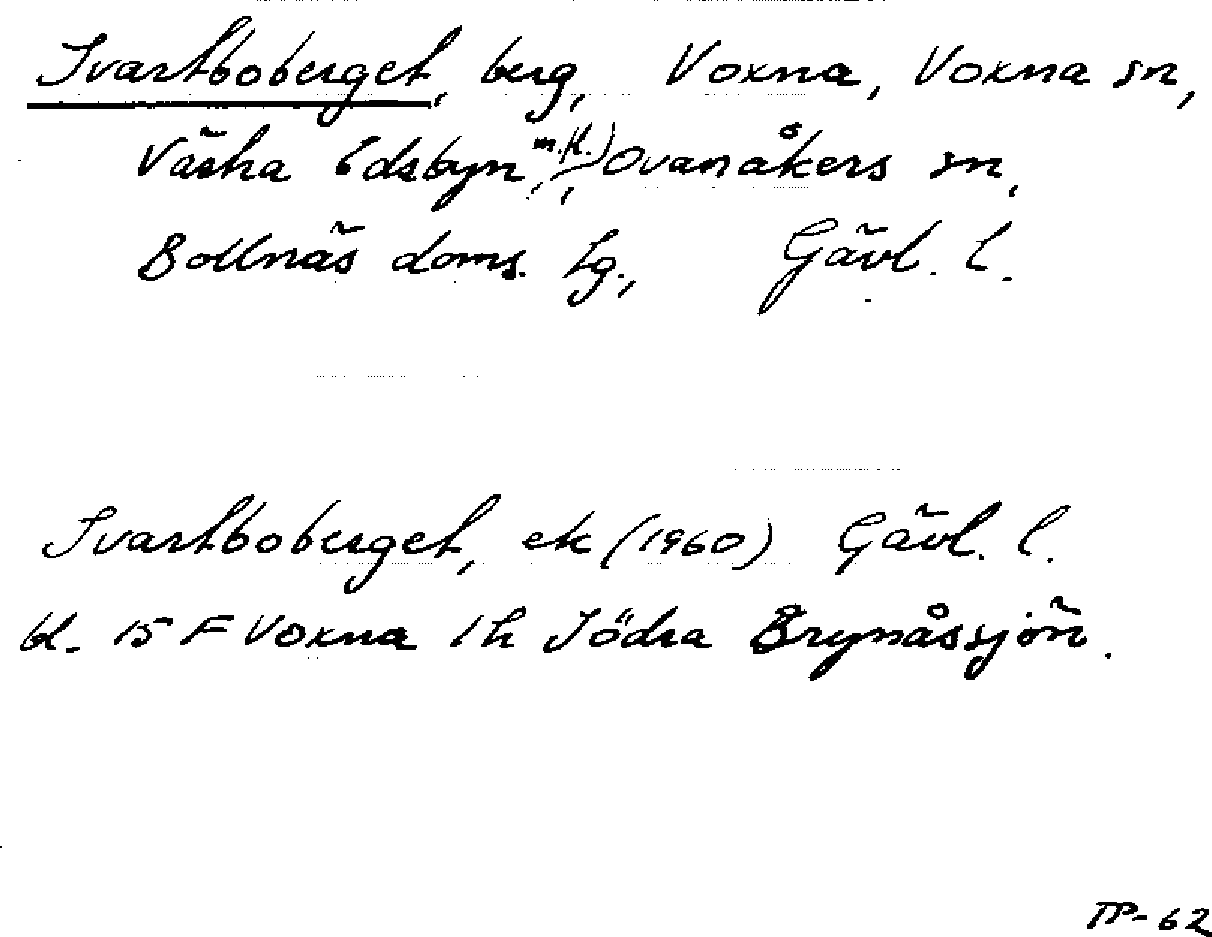 Svartboberget, berg, Voxna, Voxna sn,
Västra Edsbyn, m.fl.) Ovanåkers sn,
Bollnäs doms. Lg., Gävl. l.
Svartboberget, ek (1960) Gävl. l.
bl. 15 F Voxna 1h Södra Brynåssjön.
TP-62